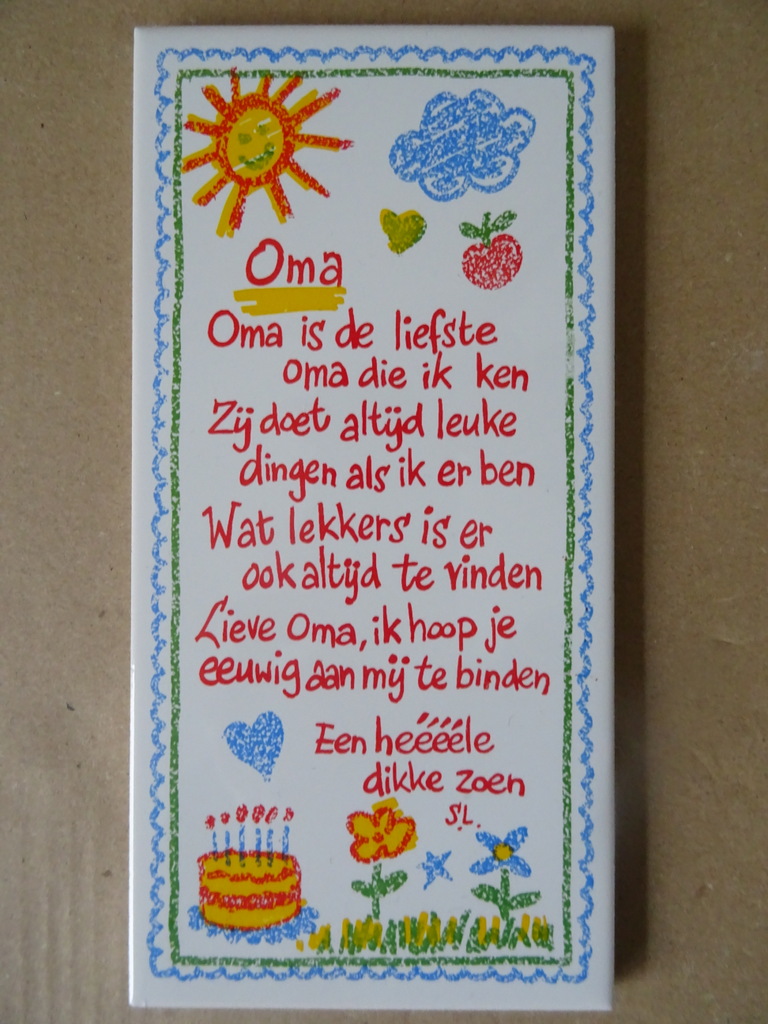 Oma
Oma is de liefste
oma die ik ken
Zij doet altijd leuke
dingen als ik er ben
Wat lekkers is er
ook altijd te vinden
Lieve Oma, ik hoop je
eeuwig aan mij te binden
Een heéééle
dikke zoen
S.L.